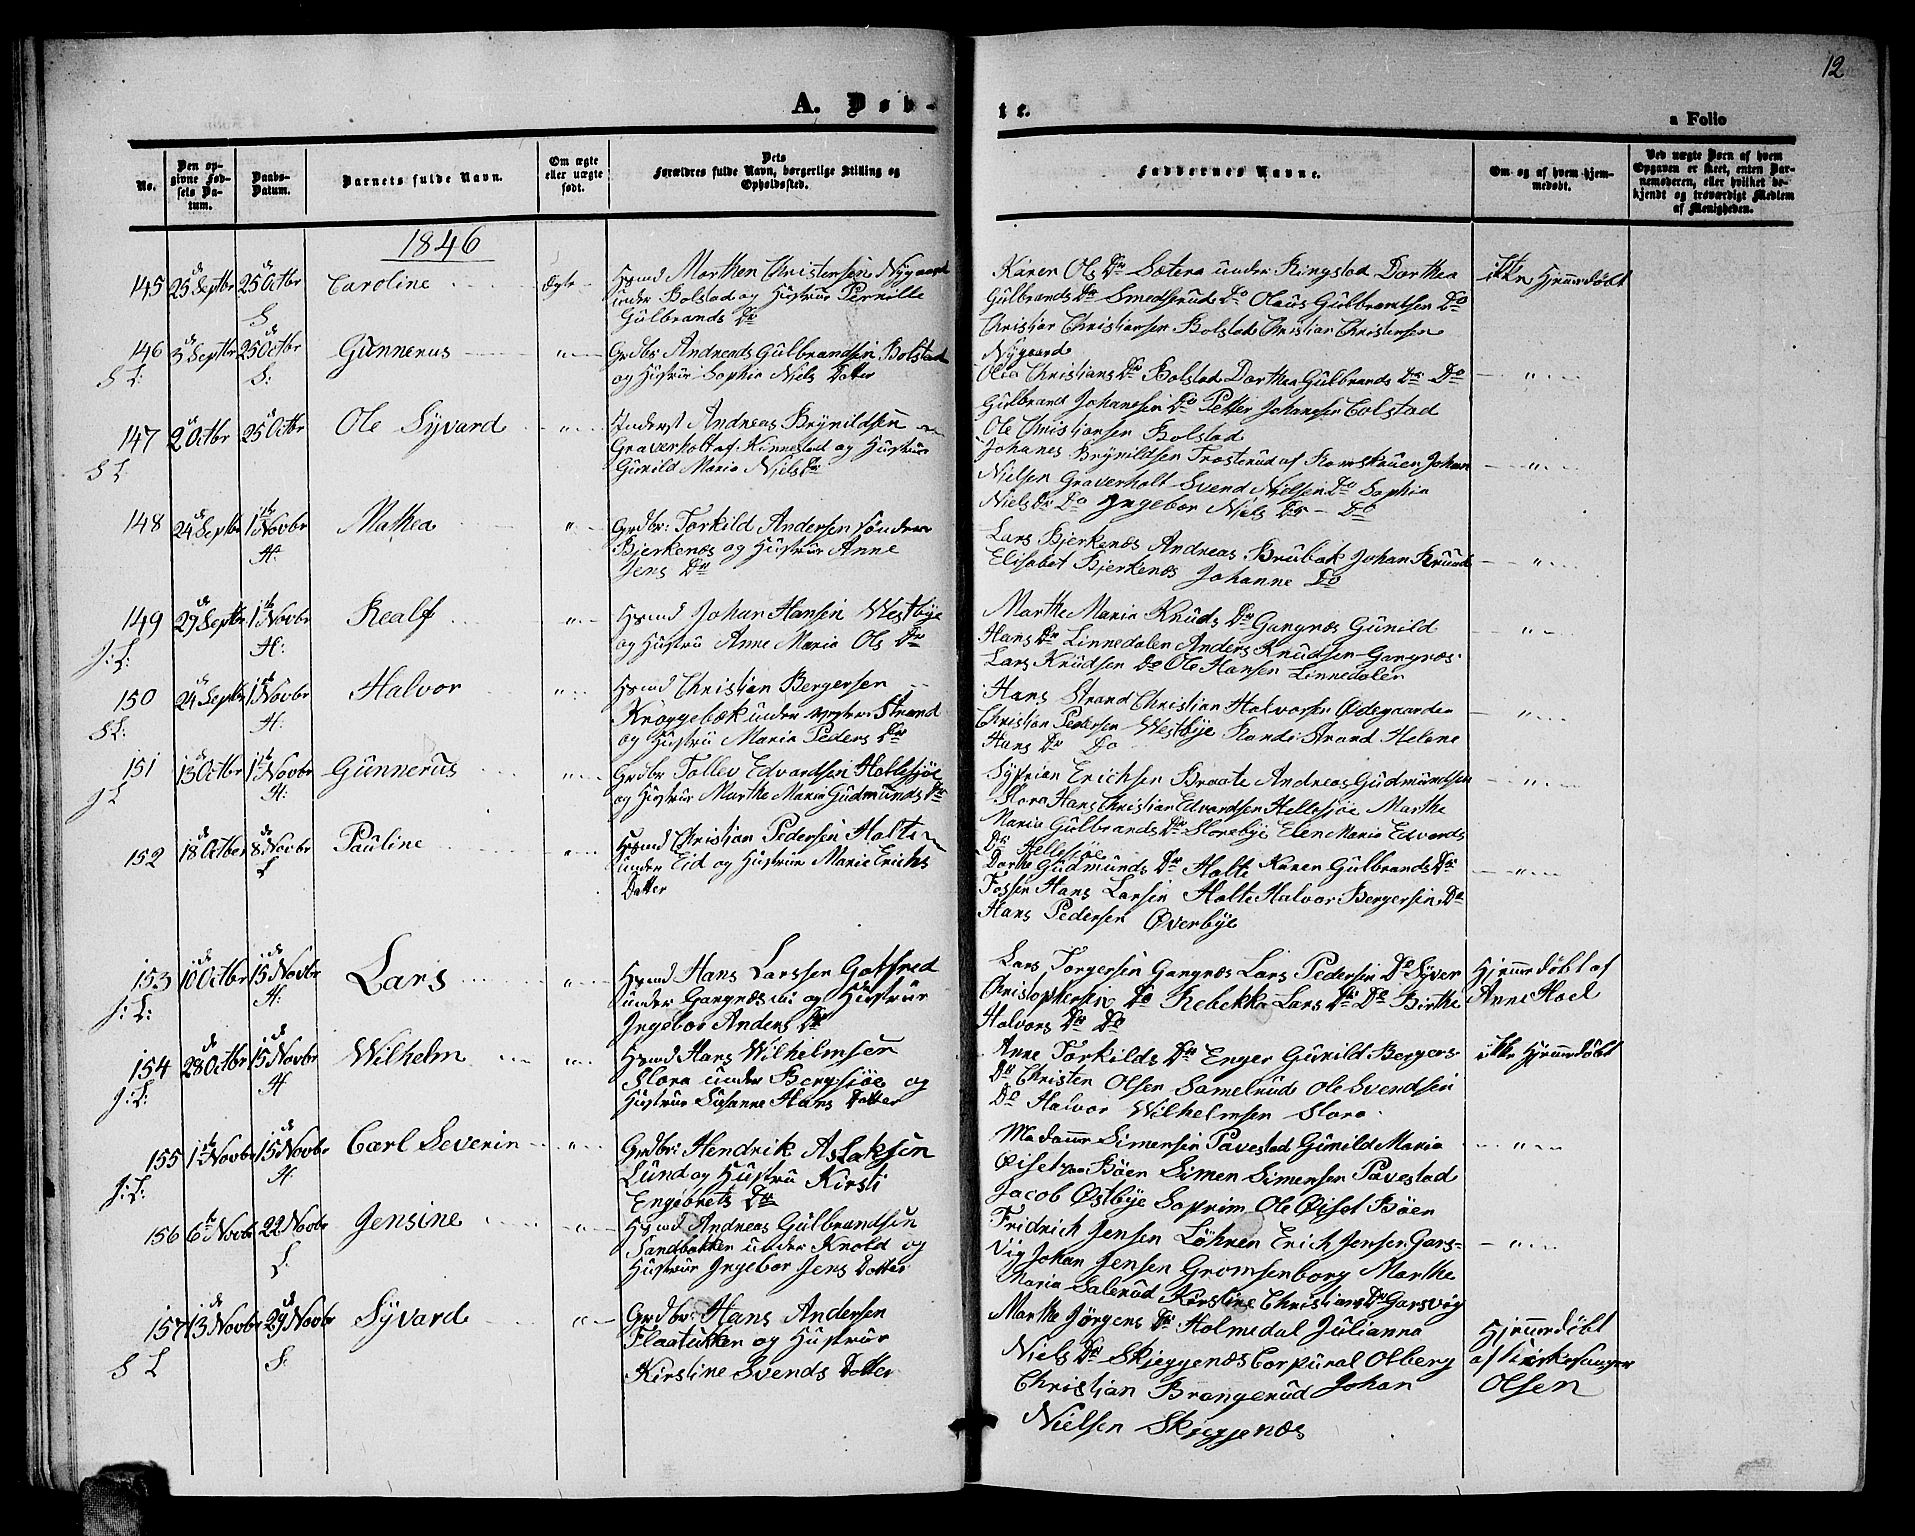 12
A. Døb-
te.
a Folio
No.
Den op-
givne Fød-
sels Da-
tum.
Daabs-
Datum.
Barnets fulde Navn.
Om ægte
eller uægte
født.
Dets
Forældres fulde Navn, borgerlige Stilling og
Opholdssted.
Faddernes Navne.
Om og af hvem hjem-
medøbt.
Ved uægte Børn af hvem
Opgaven er skeet, enten Bar-
nemoderen, eller hvilket be-
kjendt og troværdigt Medlem
af Menigheden.
1846
145 25 Septbr 25 Octbr Caroline Ægte
S
Hsmd Morthen Christensen Nygaard
under Bolstad og Hustrue Pernille
Gulbrands Dr
Karen Ols Dr Sætera under Ringstad Dorthea
Gulbrands Dr Smedsrud Do Olaus Gulbrandsen Do
Christian Christiansen Bolstad Christian Christensen
Nygaard
ikke Hjemmedøbt
146 3 Septbr 25 Octbr Gunnerus
S L: S:
Grdbr: Andreas Gulbrandsen Bolstad
og Hustrue Sophia Niels Datter
Olia Christians Dr Bolstad Dorthea Gulbrands Dr Do
Gulbrand Johansen Do Petter Johansen Bolstad
Ole Christiansen Bolstad
147 2 Octbr 25 Octbr Ole Syvard
S L
Andreas Brynildsen
Graverholt af Kinnestad og Hustrue
Gunild Maria Niels Dr
Johanes Brynildsen Trosterud af Romskauen Johan
Nielsen Graverholt Svend Nielsen Do Sophia
Niels Dr Do Ingebor Niels Dr - Do
148 24 Septbr 1 Novbr Mathea
H:
Grdbr: Torkild Andersen Søndre
Bjerkenæs og Hustrue Anne
Jens Dr
Lars Bjerkenæs Andreas Brubak Johan Krund
Elisabet Bjerkenæs Johanne Do
149 29 Septbr 1 Novbr Realf
J: L: H:
Hsmd Johan Hansen Westbye
og Hustru Anne Maria Ols Dr
Marthe Maria Knuds Dr Gangnæs Gunild
Hans Dr Linnedalen Anders Knudsen Gangnæs
Lars Knudsen Do Ole Hansen Linnedalen
150 24 Septbr 1 Novbr Halvor
S L: H:
Hsmd Christian Bergersen
Kroggebæk under Strand
og Hustru Maria Peders Dr
Hans Strand Christian Halvorsen Ødegaarden
Christian Pedersen Westbye Randi Strand Helene
Hans Dr Do
151 13 Octbr 1 Novbr Gunnerus
J L H:
Grdbr Tollev Edvardsen Hellesjøe
og Hustrue Marthe Maria Gudmunds Dr
Syprian Erichsen Braate Andreas Gudmundsen
Slora Hans Christian Edvardsen Hellesjøe Marthe
Maria Gulbrands Dr Slorebye Elen Maria Edvards
Dr Hellesjøe
152 18 Octber 8 Novbr Pauline
L
Hsmd Christian Pedersen Holte
under Eid og Hustrue Marie Erichs
Datter
Dorthe Gudmunds Dr Holte Karen Gulbrands Dr
Fossen Hans Larsen Holte Halvor Bergersen Do
Hans Pedersen Øverbye
153 10 Octbr 15 Novbr Lars
J: L: H:
Hsmd Hans Larssen Gotfred
under Gangnæs og Hustrue
Ingebor Anders Dr
Lars Torgersen Gangnæs Lars Pedersen Do Syver
Christophersen Do Rebekka Lars Dr Do Birthe
Halvors Dr Do
Hjemmedøbt af
Anne Hoel
154 28 Octbr 15 Novbr Wilhelm
J: L: H
Hsmd Hans Wilhelmsen
Slora under Bergsjøe og
Hustrue Susanne Hans Datter
Anne Torkilds Dr Enger Gunild Bergers-
Dr Christen Olsen Samelrud Ole Svendsen
Do Halvor Wilhelmsen Slora.
ikke Hjemmedøbt
155 1 Novbr 15 Novbr Carl Severin
J: L: H:
Grdbr: Hendrik Aslaksen
Lund og Hustru Kirsti
Engebrets Dr
Madame Simensen Pavestad Gunild Maria
Øiset Bøen Simen Simensen Pavestad
Jacob Østbye Soprim Ole Øiset Bøen
156 6 Novbr 22 Novbr Jensine
L
Hsmd Andreas Gulbrandsen
Sandbakken under Knold og
Hustrue Ingebor Jens Datter
Fridrich Jensen Løhren Erich Jensen Gars-
vig Johan Jensen Gromsenborg Marthe
Maria Salerud Kirstine Christians Dr Garsvig
157 13 Novbr 29 Novbr Syvard
S L S:
Grdbr: Hans Andersen
Flaatukken og Hustrue
Kirstine Svends Datter
Marthe Jørgens Dr Holmedal Julianna
Niels Dr Skjeggenæs Corpural Otberg
Christian Brangerud Johan
Nielsen Skjeggenæs
Hjemmedøbt
af Kirkesanger
Olsen